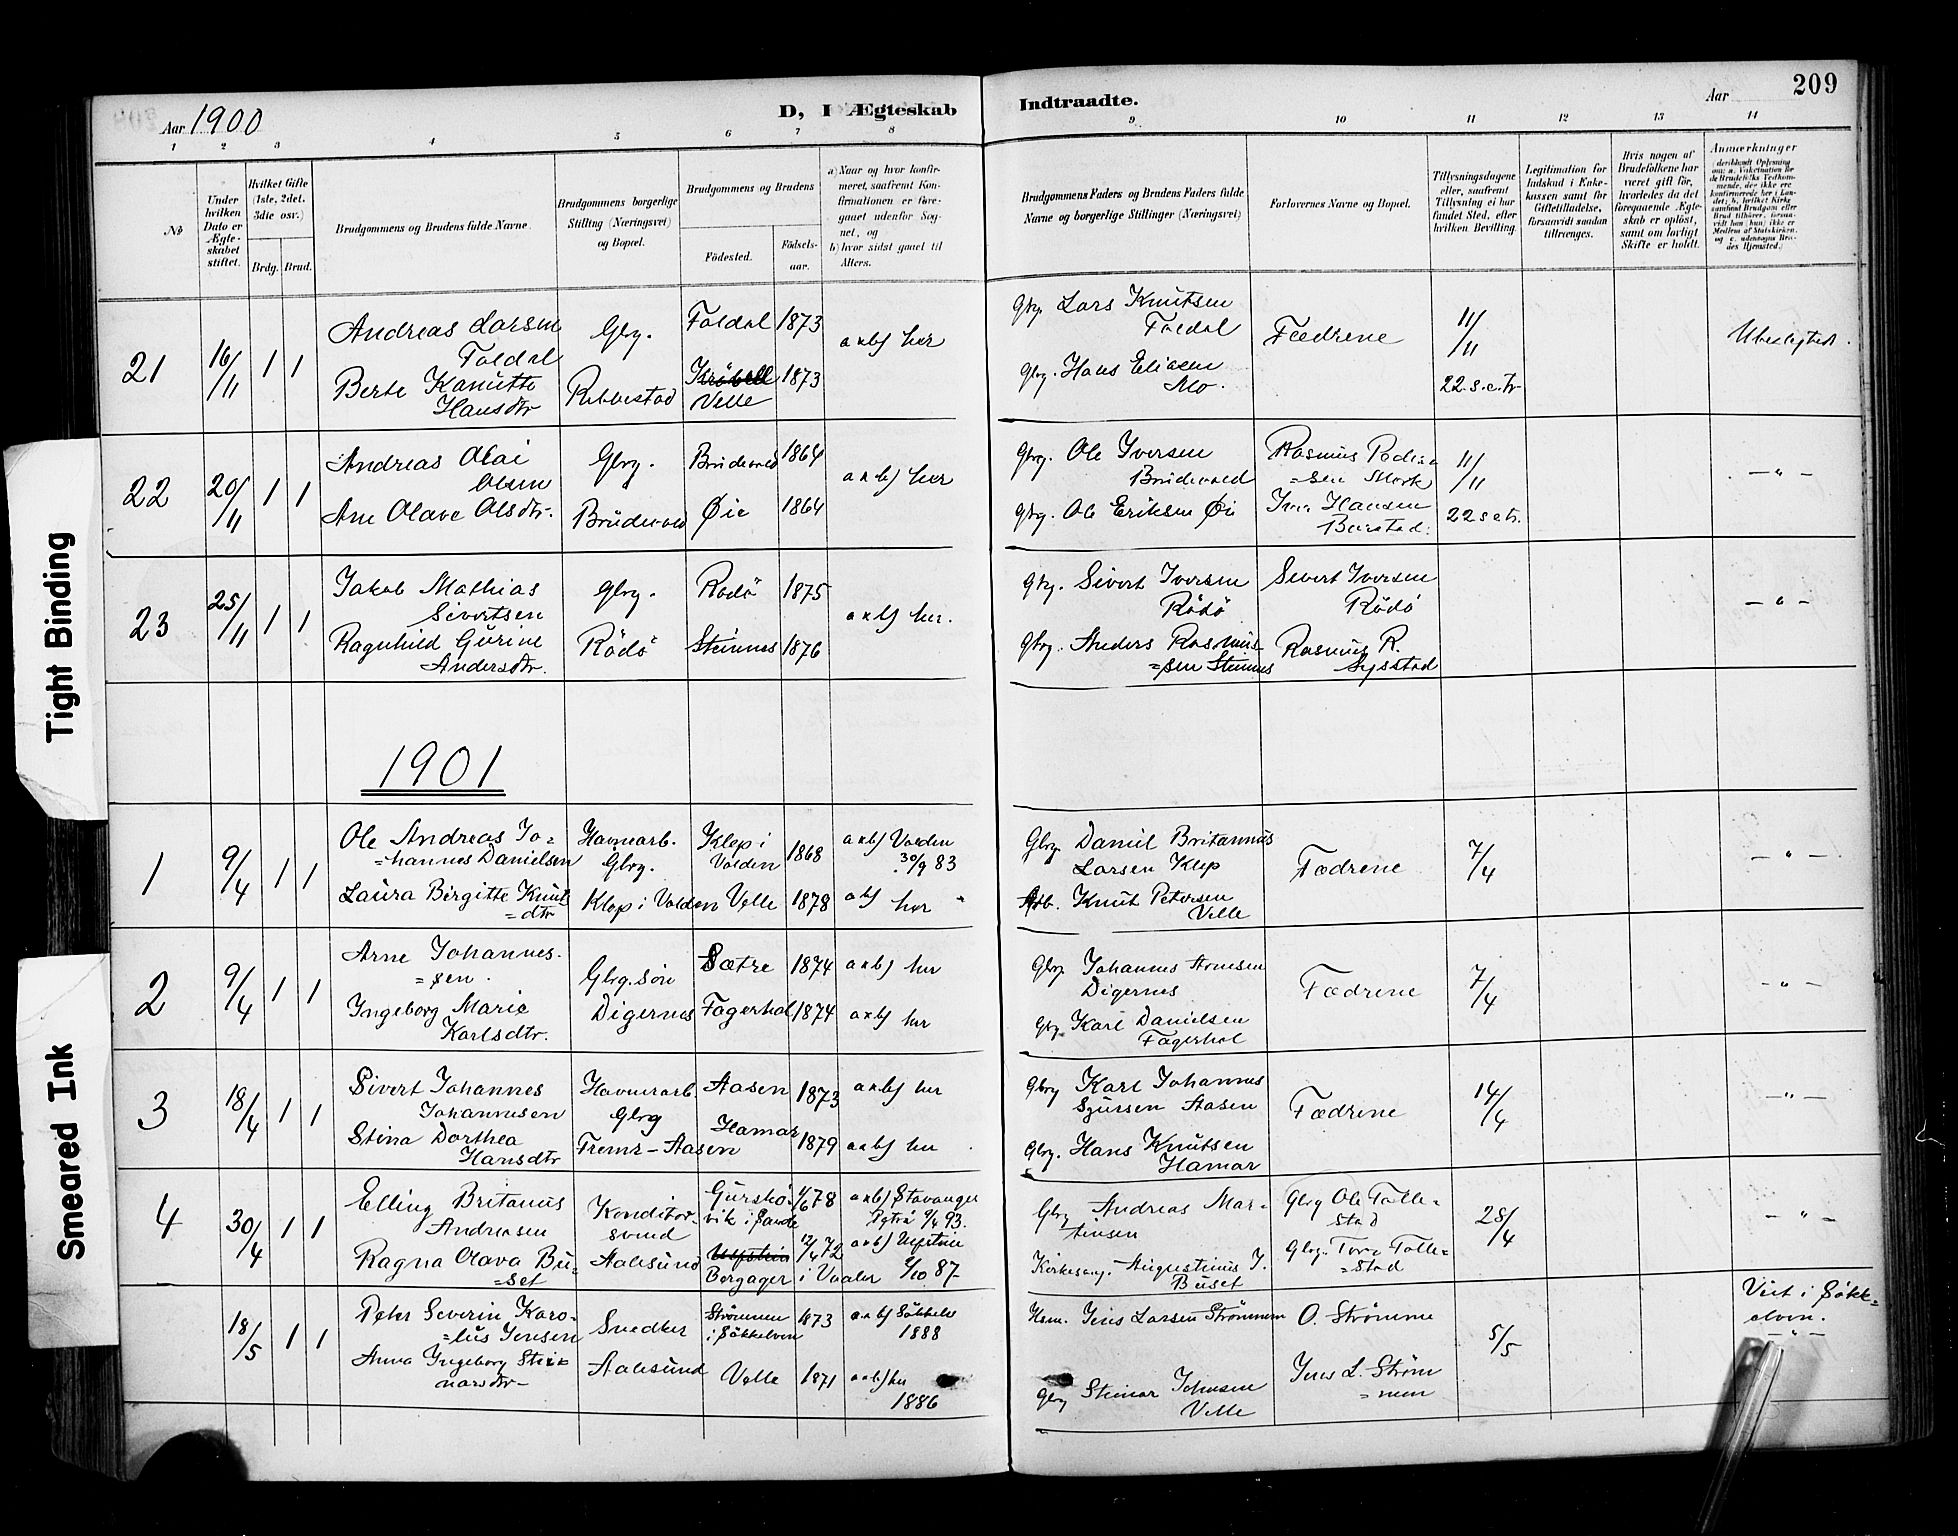 Aar 1900
D, I Ægteskab
Indtraadte.
Aar
209
1 2 3 4 5 6 7 8 9 10 11 12 13 14
Nº
Under hvilken Dato er Ægteskabet stiftet.
Hvilket Gifte (1ste, 2det, 3die osv.)
Brdg. Brud.
Brudgommens og Brudens fulde Navne.
Brudgommens borgerlige Stilling (Næringsvei) og Bopæl.
Brudgommens og Brudens
Födested.
Födselsaar.
a) Naar og hvor konfirmeret, saafremt Konfirmationen er foregaaet udenfor Sognet, og
b) hvor sidst gaaet til Alters.
Brudgommens Faders og Brudens Faders fulde Navne og borgerlige Stillinger (Næringsvei)
Forlovernes Navne og Bopæl.
Tillysningsdagene eller, saafremt Tillysning ei har fundet Sted, efter hvilken Bevilling.
Legitimation for Indskud i Enkekassen samt for Giftetilladelse, forsaavidt saadan tiltrænges.
Hvis nogen af Brudefolkene har været gift för, hvorledes da det foregaaende Ægteskab er oplöst, samt om lovligt Skifte er holdt.
Anmærkninger
21
16/11
1 1
Andreas Larsen
Foldal
Berte Kanutte
Hansdtr
Gbrg.
Ribbestad
Foldal 1873
Velle 1873
a & b) her
Gbrg. Lars Knutsen
Foldal
Gbrg. Hans Eliasen
Mo.
Fædrene
11/11
22. s. e. tr.
Ubeslegted.
22
20/11
1 1
Andreas Olai
Olsen
Ane Olave Olsdtr.
Gbrg.
Brudevold
Brudevold 1864
Øie 1864
a & b) her
Gbrg. Ole Iversen
Brudevold
Gbrg. Ole Eriksen Øie
Rasmus
=sen Mork
Iver Hansen
11/11
22 s e tr.
— " —
23
25/11
1 1
Jakob Mathias
Sivertsen
Ragnhild Gurine
Andersdtr.
Gbrg.
Rödö
Rödö 1875
Steinnes 1876
a & b) her.
Gbrg. Sivert Iversen
Rödö
Gbrg. Anders Rasmus
=sen Steinnes
Sivert Iversen
Rödö
Rasmus R.
Sysstad
— " —
1901
1
9/4
1 1
Ole Andreas Jo=
=hannes Danielsen
Laura Birgitte Knut
=dtr
Havnearb.
Gbrg.
Klep i Volden
Klep i
Volden 1868
Velle 1878
a & b) Volden
30/9 83
a b) her "
Gbrg. Daniel Britannus
Larsen Klep
Arb. Knut Petersen
Velle
Fædrene
7/4
— " —
2
9/4
1 1
Arne Johannes.
=sen.
Ingeborg Marie
Karlsdtr.
Gbrg. sön
Digernes
Sætre 1874
Fagerhol 1874
a & b) her
a & b) her
Gbrg. Johannes Arnesen
Digernes
Gbrg. Karl Danielsen
Fagerhol
Fædrene
7/4
— " —
3
18/4
1 1
Sivert Johannes
Johannesen
Stina Dorthea
Hansdtr
Havnearb.
Gbrg
Aasen
Aasen 1873
Hamar 1879
a & b) her
a & b) her.
Gbrg Karl Johannes
Sjursen Aasen
Gbrg. Hans Knutsen
Hamar
Fædrene
14/4
— " —
4
30/4
1 1
Elling Britanus
Andreasen
Ragna Olava Bu=
=set
Konditor
svend
Aalesund
Gurskö.
vik i Sande
4/6 78
12/4 72
Borgager i Vaaler
a & b) Stavanger
Petri 9/4 93.
a & b) Ulfstein
2/10 87
Gbrg Andreas Mar=
tinsen
Kirkesang. Augustinus J.
Buset
Gbrg Ole Tolle=
stad
Gbrg. Tore Tolle=
=stad
28/4
— " —
18/5
1 1
Peter Severin Karo=
=lus Jensen
Anna Ingeborg Stei=
narsdtr
Snedker
Aalesund
Strömmen
i Søkkelven 1873
Velle 1871
a & b) Søkkelv
1888
a & b) her
1886
Hsm. Jens Larsen Strömmen
Gbrg Steinar Johnsen
Velle
O. Strömme
Jens L. Ström
=men
5/5
Viet i Søkk=
elven.
— " —
Tight Binding
Smeared Ink